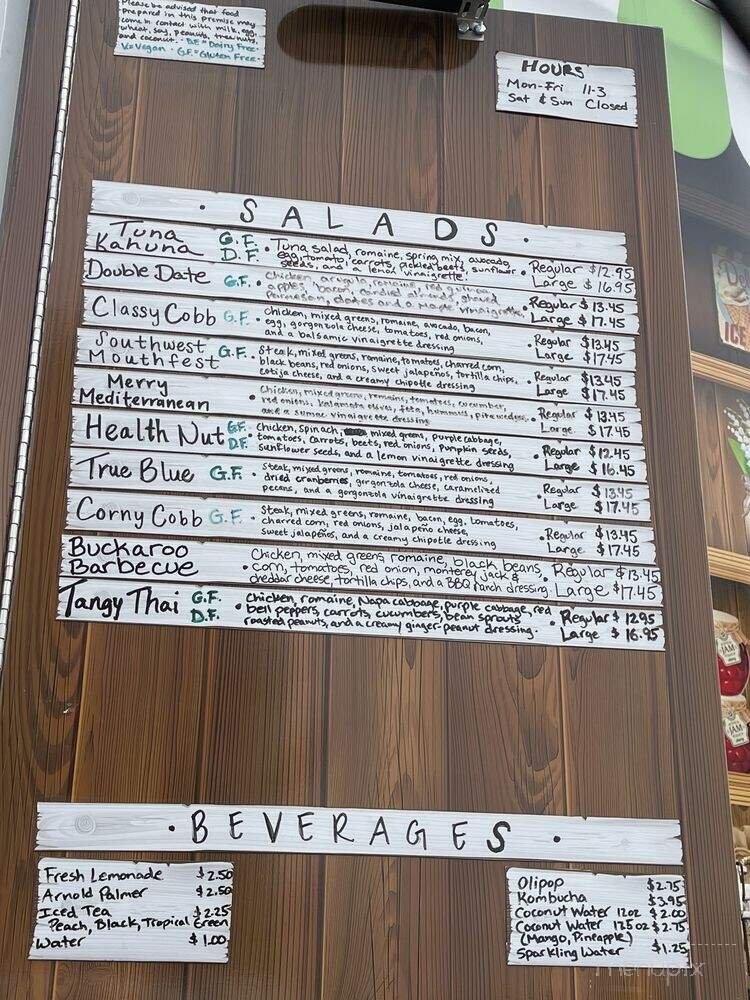 Please be advised that food
prepared in this premise may
come in contact with milk, egg,
wheat, soy, peanuts, tree nuts
and coconut. D.F = Dairy Free
V=Vegan · G.F.=Gluten Free
HOURS
Mon-Fri 11-3
Sat & Sun Closed
· SALADS ·
Tuna Kahuna G.F. D.F. · Tuna salad, romaine, spring mix, avocado,
egg, tomato, carrots, pickled beets, sunflower
seeds, and a lemon vinaigrette · Regular $12.95
Large $16.95
Double Date G.F. · Chicken, arugula, romaine, red quinoa
apples, bacon, candied almonds, shaved
Parmesan, dates and a Maple Vinaigrette · Regular $13.45
Large $17.45
Classy Cobb G.F. · chicken, mixed greens, romaine, avocado, bacon,
egg, gorgonzola cheese, tomatoes, red onions,
and a balsamic vinaigrette dressing · Regular $13.45
Large $17.45
Southwest Mouthfest G.F. · Steak, mixed greens, romaine, tomatoes, charred corn,
black beans, red onions, sweet jalapeños, tortilla chips,
cotija cheese, and a creamy chipotle dressing · Regular $13.45
Large $17.45
Merry Mediterranean · Chicken, mixed greens, romaine, tomatoes, cucumber,
red onions, kalamata olives, feta, hummus, pita wedges,
and a sumac vinaigrette dressing · Regular $13.45
Large $17.45
Health Nut G.F. D.F. · chicken, spinach, mixed greens, purple cabbage,
tomatoes, carrots, beets, red onions, pumpkin seeds,
sunflower seeds, and a lemon vinaigrette dressing · Regular $12.45
Large $16.45
True Blue G.F. · Steak, mixed greens, romaine, tomatoes, red onions,
dried cranberries, gorgonzola cheese, caramelized
pecans, and a gorgonzola vinaigrette dressing · Regular $13.45
Large $17.45
Corny Cobb G.F. · Steak, mixed greens, romaine, bacon, egg, tomatoes,
charred corn, red onions, jalapeño cheese,
sweet jalapeños, and a creamy chipotle dressing · Regular $13.45
Large $17.45
Buckaroo Barbecue · Chicken, mixed greens, romaine, black beans,
corn, tomatoes, red onion, monterey jack &
cheddar cheese, tortilla chips, and a BBQ ranch dressing · Regular $13.45
Large $17.45
Tangy Thai G.F. D.F. · Chicken, romaine, Napa cabbage, purple cabbage, red
bell peppers, carrots, cucumbers, bean sprouts
roasted peanuts, and a creamy ginger-peanut dressing. · Regular $12.95
Large $16.95
· BEVERAGES ·
Fresh Lemonade $2.50
Arnold Palmer $2.50
Iced Tea $2.25
Peach, Black, Tropical Green
Water $1.00
Olipop $2.75
Kombucha $3.95
Coconut Water 12oz $2.00
Coconut Water 12.5oz $2.75
(Mango, Pineapple)
Sparkling Water $1.25
ICE
JAM
JAM
menupix